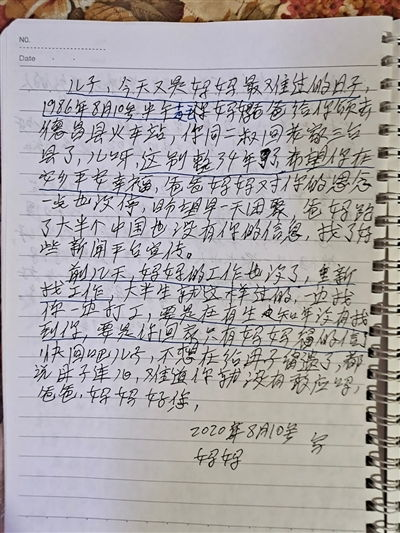 NO.
Date
儿子，今天又是妈妈最难过的日子，
1986年8月10号半年 你妈 爸给你领去
德昌县火车站，你同二叔回老家三台
县了，儿呀，这别整34年了，希望你在
安平安幸福，爸爸妈妈对你的思念
一点也没停，盼望早一天团聚，爸妈跑
了大半个中国也没有你的信息，找了好
些新闻平台宣传。
前几天，妈妈的工作也没了，重新
找工作，大半生就这样过的，一边找
你一边打工，要是在有生 年没有找
到你，要是你回家只有妈妈 的信了
快回吧儿子，不想在给母子 遗了，都
说母子连心，难道你就没有感应吗，
爸爸、妈妈 好你，
2020年8月10号 写
妈妈